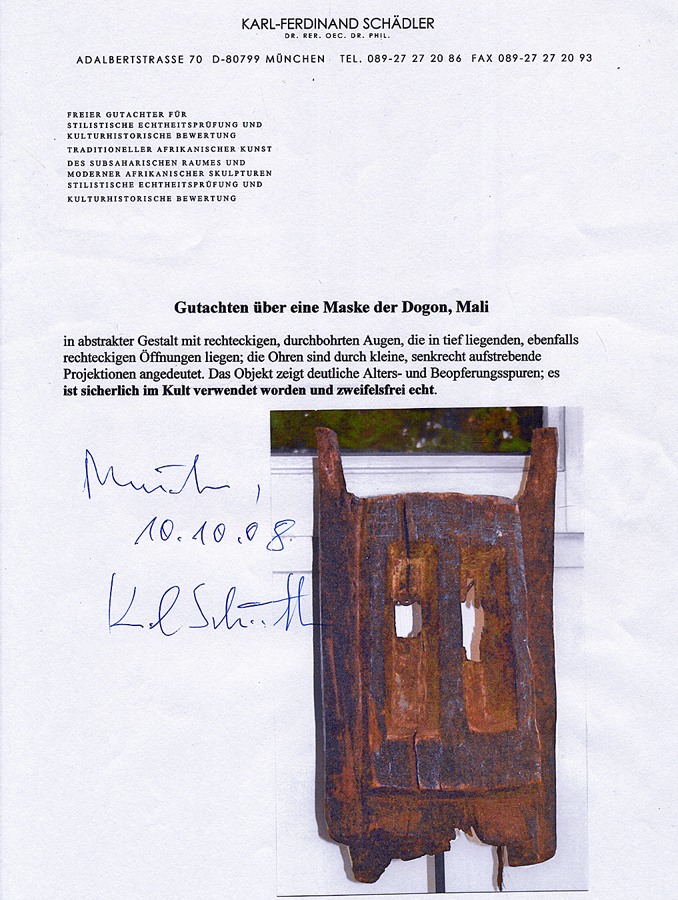 KARL-FERDINAND SCHÄDLER
DR. RER. OEC. DR. PHIL.
ADALBERTSTRASSE 70 D-80799 MÜNCHEN TEL. 089-27 27 20 86 FAX 089-27 27 20 93
FREIER GUTACHTER FÜR
STILISTISCHE ECHTHEITSPRÜFUNG UND
KULTURHISTORISCHE BEWERTUNG
TRADITIONELLER AFRIKANISCHER KUNST
DES SUBSAHARISCHEN RAUMES UND
MODERNER AFRIKANISCHER SKULPTUREN
STILISTISCHE ECHTHEITSPRÜFUNG UND
KULTURHISTORISCHE BEWERTUNG
Gutachten über eine Maske der Dogon, Mali
in abstrakter Gestalt mit rechteckigen, durchbohrten Augen, die in tief liegenden, ebenfalls
rechteckigen Öffnungen liegen; die Ohren sind durch kleine, senkrecht aufstrebende
Projektionen angedeutet. Das Objekt zeigt deutliche Alters- und Beopferungsspuren; es
ist sicherlich im Kult verwendet worden und zweifelsfrei echt.
München,
10.10.08.